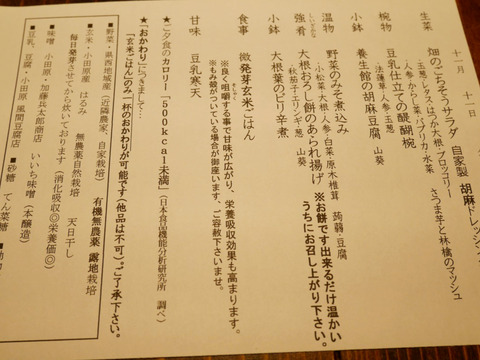 十一月 十一日
生菜 畑のごちそうサラダ 自家製 胡麻ドレッシング
・玉葱・レタス・はつか大根・ブロッコリー
・人参・から し菜・パプリカ・水菜 さつま芋と林檎のマッシュ
椀物 豆乳仕立ての醍醐椀
・法蓮草・人参・玉葱
小鉢 養生館の胡麻豆腐 山葵
温物 野菜のみぞ煮込み
・小松菜・大根・人参・白菜・原木椎茸 蒟蒻・豆腐
強肴 大根おろし餅のあられ揚げ ※お餅です出来るだけ温かい
うちにお召し上がり下さい。
・秋茄子・エリンギ・葱 山葵
小鉢 大根葉のピリ辛煮
食事 微発芽玄米ごはん
※良く咀嚼する事で甘味が広がり、栄養吸収効果も高まります。
※もみ殻がついている場合が御座います、ご容赦下さいませ。
甘味 豆乳寒天
★ご夕食のカロリー「500kcal未満」(日本食品機能分析研究所 調べ)
★「おかわり」につきまして…
「玄米ごはん」のみ「一杯のおかわりが可能です(他品は不可)。ご了承下さい。
■野菜・県西地域産(近隣農家、自家栽培) 有機無農薬 露地栽培
■玄米・小田原産 はるみ 無農薬自然栽培 天日干し
毎日発芽させてから炊いております(消化吸収◎栄養価◎)
■味噌 小田原・加藤兵太郎商店 いいち味噌(本醸造)
■豆乳、豆腐・小田原 風間豆腐店 ■砂糖 てん菜糖